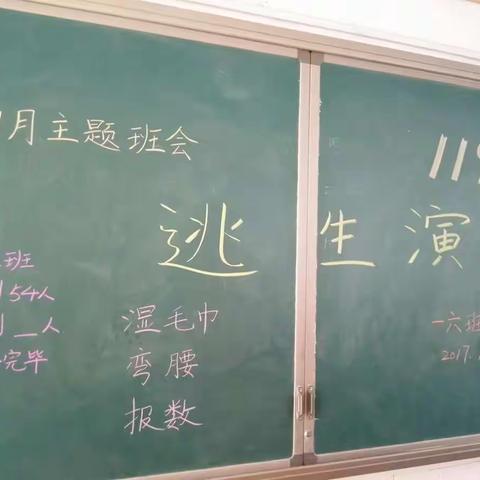 月主题班会
119
逃生演
班
54人
人
完毕
湿毛巾
弯腰
报数
一六班
2017.